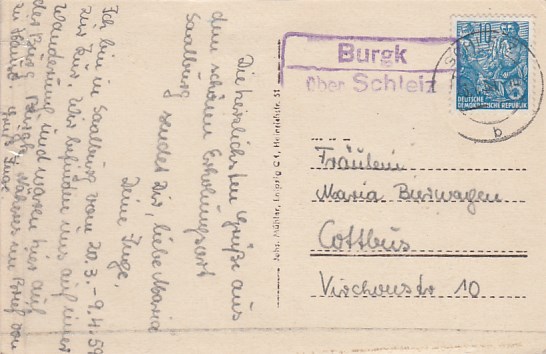 Die herzlichsten Grüße aus
dem schönen Erholungsort
Saalburg sendet Dir, liebe Maria
Deine Inge.
Ich bin in Saalburg vom 20.3.-9.4.59
zur Kur. Wir befinden uns auf einer
Wanderung und waren hier auf
der Burg. Näheres im Brief von
zu Hause. Gruß Inge.
Joh. Mühler, Leipzig C1, Heinrichstr. 51
Burgk
über Schleiz
10
DEUTSCHE
DEMOKRATISCHE REPUBLIK
5
b
Fräulein
Maria
Cottbus
Virchowstr 10